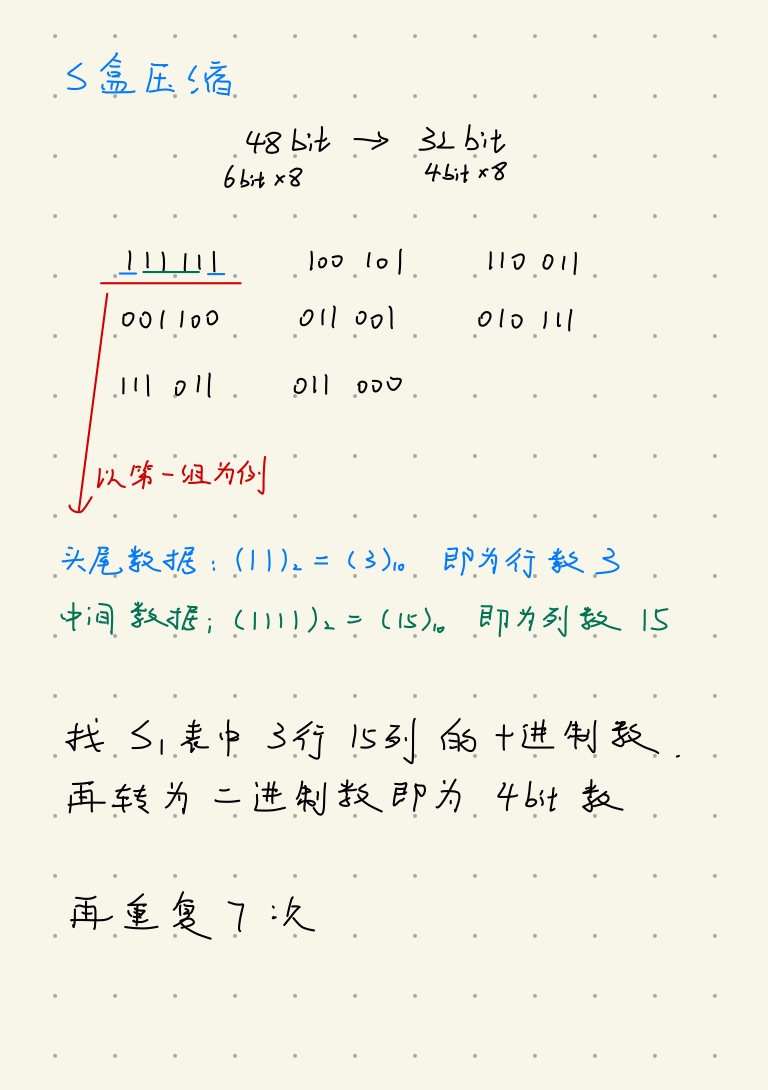 S盒压缩
48bit → 32bit
6bit×8 4bit×8
111111 100 101 110 011
001100 011 001 010 111
111 011 011 000
以第一组为例
头尾数据:(11)₂=(3)₁₀ 即为行数 3
中间数据;(1111)₂=(15)₁₀ 即为列数 15
找 S₁表中 3行 15列 的十进制数.
再转为二进制数即为 4bit 数
再重复7次